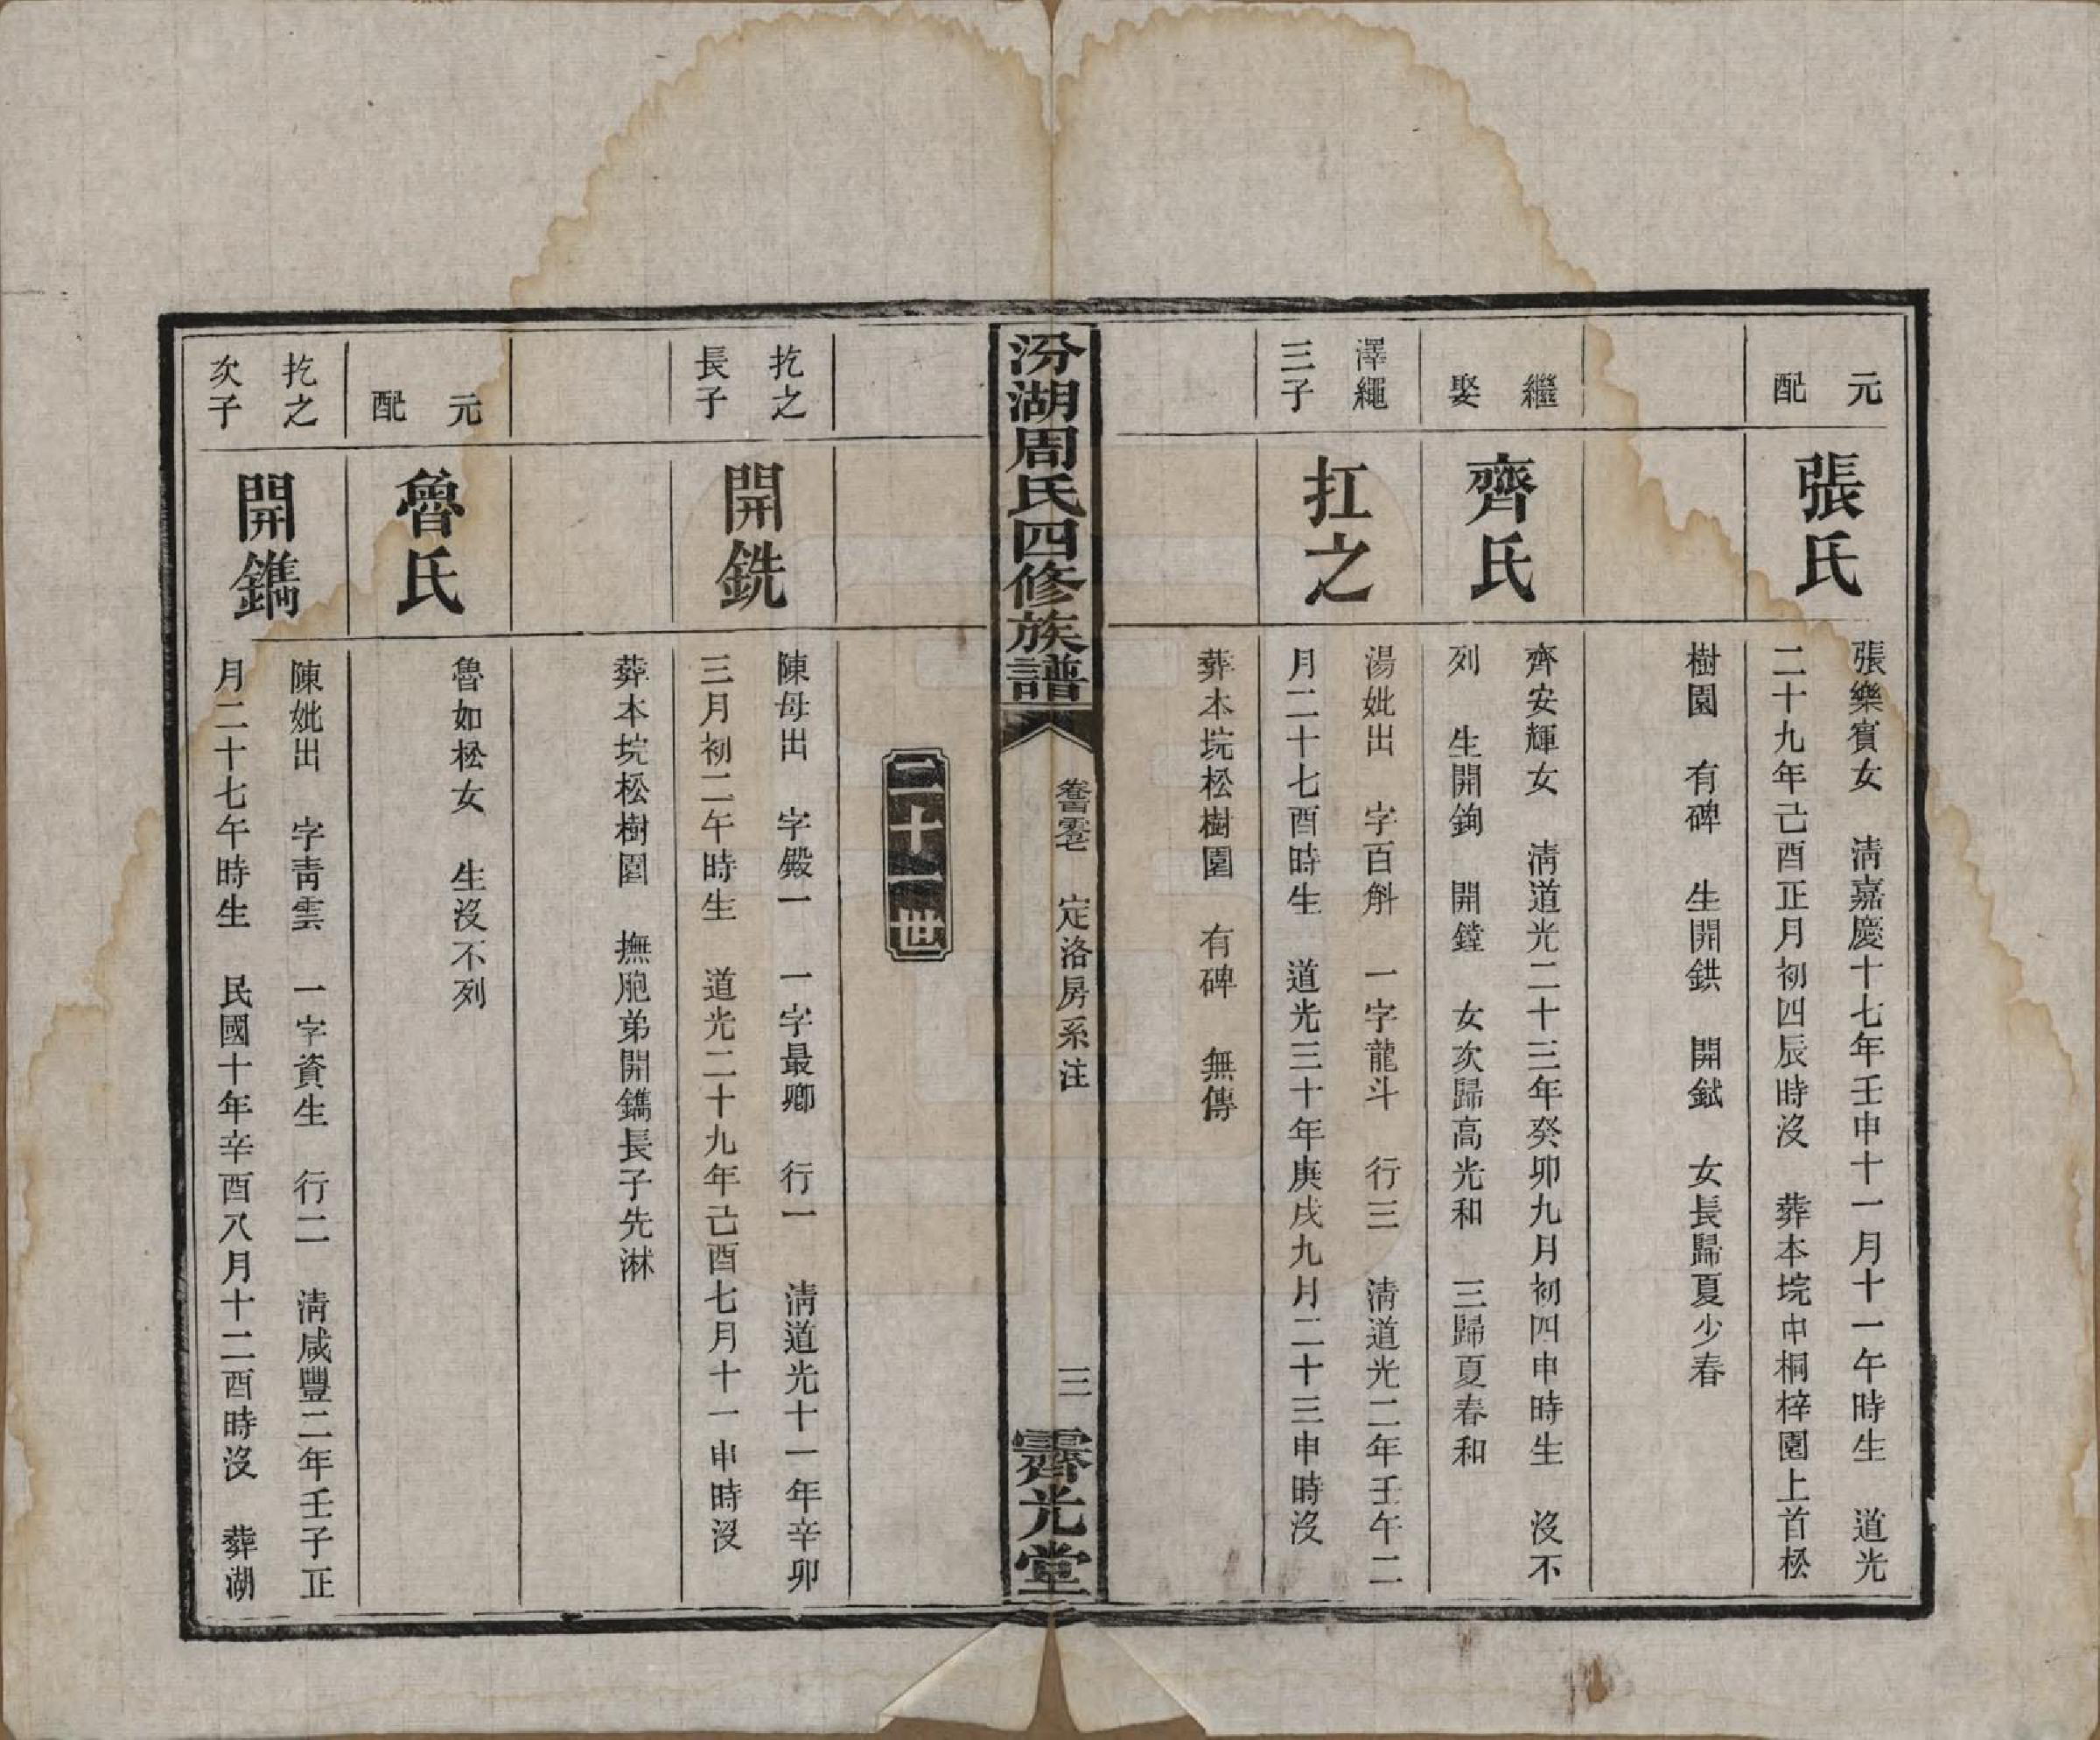 元
配
張氏
張樂賓女　清嘉慶十七年壬申十一月十一午時生　道光
二十九年己酉正月初四辰時沒　葬本垸中桐梓園上首松
樹園　有碑　生開鉷　開鉽　女長歸夏少春
繼
娶
齊氏
齊安輝女　清道光二十三年癸卯九月初四申時生　沒不
列　生開鉤　開鏜　女次歸高光和　三歸夏春和
澤繩
三子
扛之
湯妣出　字百斛　一字龍斗　行三　清道光二年壬午二
月二十七酉時生　道光三十年庚戌九月二十三申時沒
葬本垸松樹園　有碑　無傳
汾湖周氏四修族譜
定洛房系注
三
霽光堂
二十一世
扢之
長子
開銑
陳母出　字殿一　一字最卿　行一　清道光十一年辛卯
三月初二午時生　道光二十九年己酉七月十一申時沒
葬本垸松樹園　撫胞弟開鐫長子先淋
元
配
魯氏
魯如松女　生沒不列
扢之
次子
開鐫
陳妣出　字青雲　一字資生　行二　清咸豐二年壬子正
月二十七午時生　民國十年辛酉八月十二酉時沒　葬湖